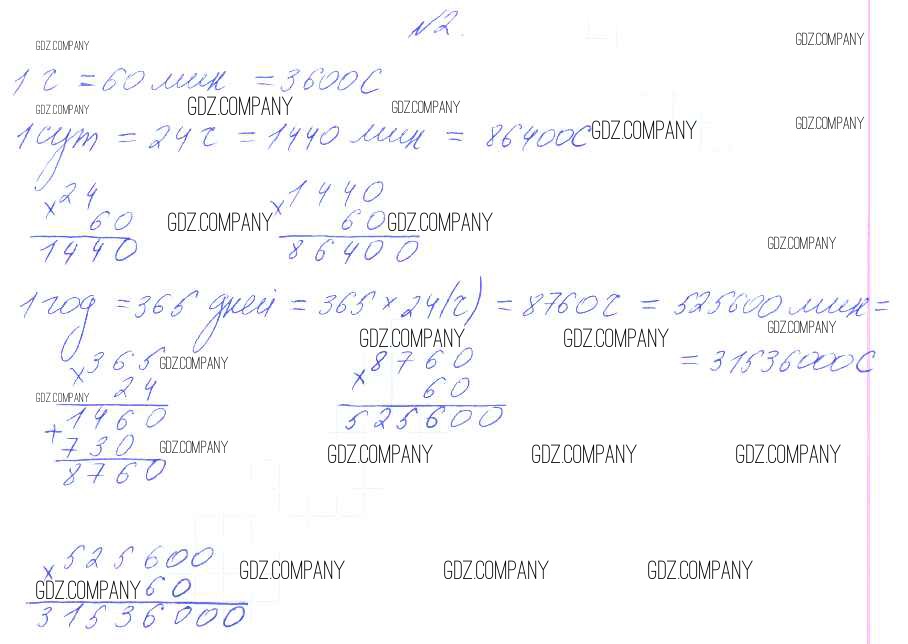 №2.
GDZ.COMPANY GDZ.COMPANY
1 ч = 60 мин = 3600 С
GDZ.COMPANY GDZ.COMPANY GDZ.COMPANY GDZ.COMPANY
1 сут = 24 ч = 1440 мин = 86400 С GDZ.COMPANY
× 24 × 1440
60 GDZ.COMPANY 60 GDZ.COMPANY
1440 86400 GDZ.COMPANY
1 год = 365 дней = 365 × 24 (ч) = 8760 ч = 525600 мин =
GDZ.COMPANY GDZ.COMPANY GDZ.COMPANY
× 365 GDZ.COMPANY × 8760 = 31536000 С
24 60
GDZ.COMPANY 1460 525600
+ 730 GDZ.COMPANY GDZ.COMPANY GDZ.COMPANY GDZ.COMPANY
8760
× 525600
GDZ.COMPANY 60 GDZ.COMPANY GDZ.COMPANY GDZ.COMPANY
31536000